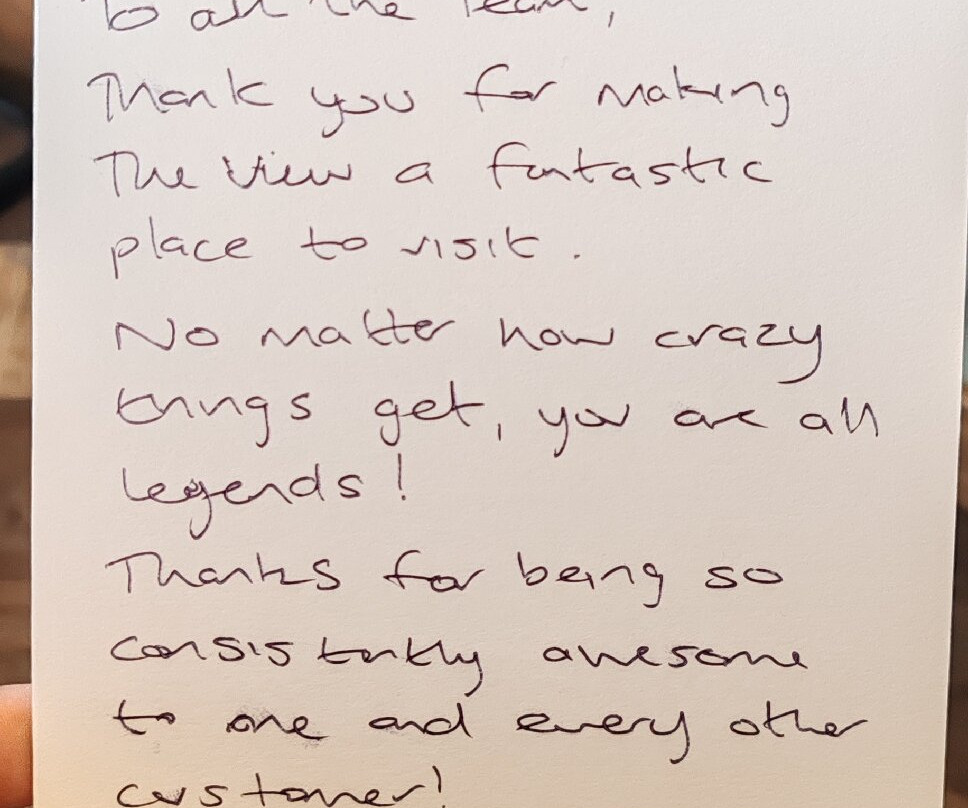 To all the team,
Thank you for making
The View a fantastic
place to visit.
No matter how crazy
things get, you are all
legends!
Thanks for being so
consistently awesome
to one and every other
customer!